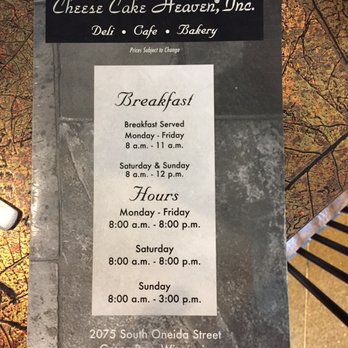 Cheese Cake Heaven, Inc.
Deli • Cafe • Bakery
Prices Subject to Change
Breakfast
Breakfast Served
Monday - Friday
8 a.m. - 11 a.m.
Saturday & Sunday
8 a.m. - 12 p.m.
Hours
Monday - Friday
8:00 a.m. - 8:00 p.m.
Saturday
8:00 a.m. - 8:00 p.m.
Sunday
8:00 a.m. - 3:00 p.m.
2075 South Oneida Street